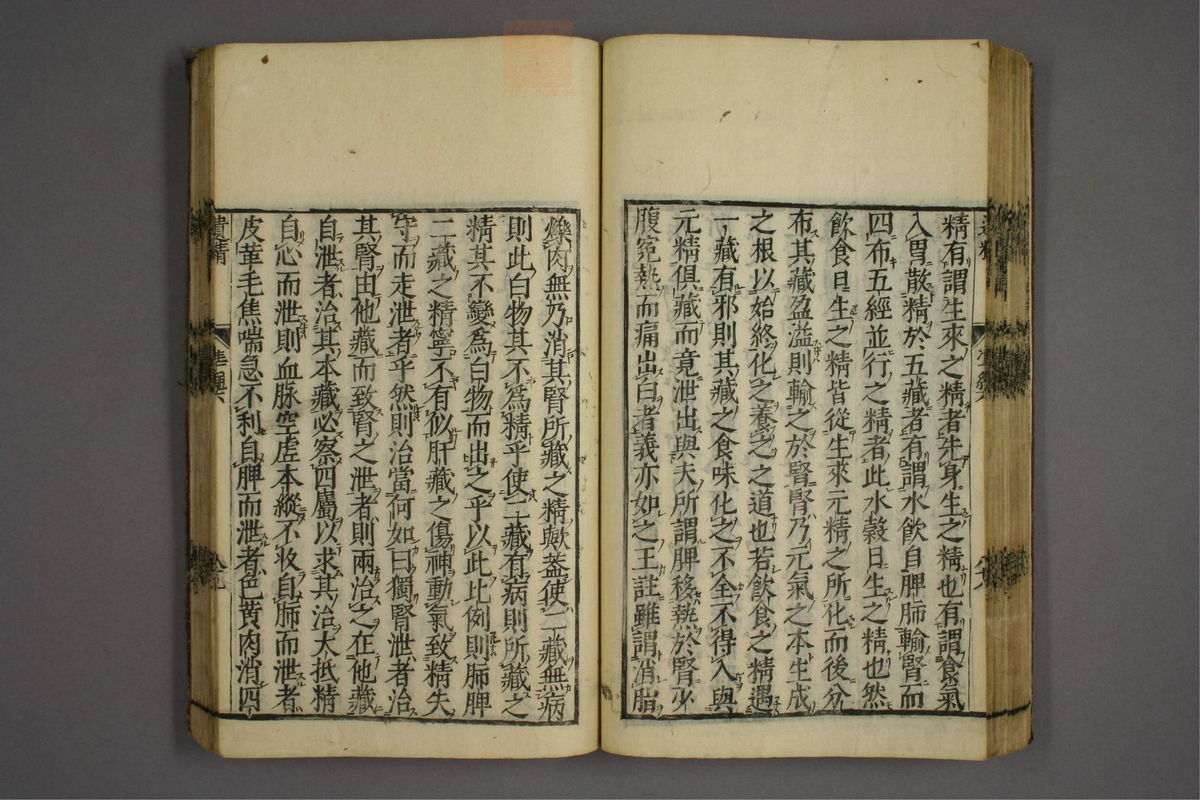 精有謂生來之精者先身生之精也有謂食氣
入胃散精於五藏者有謂水飲自脾肺輸腎而
四布五經並行之精者此水穀日生之精也然
飲食日生之精皆從生來元精之所化而後分
布其藏盈溢則輸之於腎腎乃元氣之本生成
之根以始終化之養之之道也若飲食之精遇
一藏有邪則其藏之食味化之不全不得入與
元精俱藏而竟泄出與夫所謂脾移熱於腎少
腹冤熱而痛出白者義亦如之王註雖謂消脂
爍肉無乃消其腎所藏之精歟蓋使二藏無病
則此白物其不爲精乎使二藏有病則所藏之
精其不變爲白物而出之乎以此比例則肺脾
二藏之精寧不有似肝藏之傷神動氣致精失
守而走泄者乎然則治當何如曰獨腎泄者治
其腎由他藏而致腎之泄者則兩治之在他藏
自泄者治其本藏必察四屬以求其治大抵精
自心而泄則血脉空虛本縱不收自肺而泄者
皮革毛焦喘急不利自脾而泄者色黃肉消四
遺精